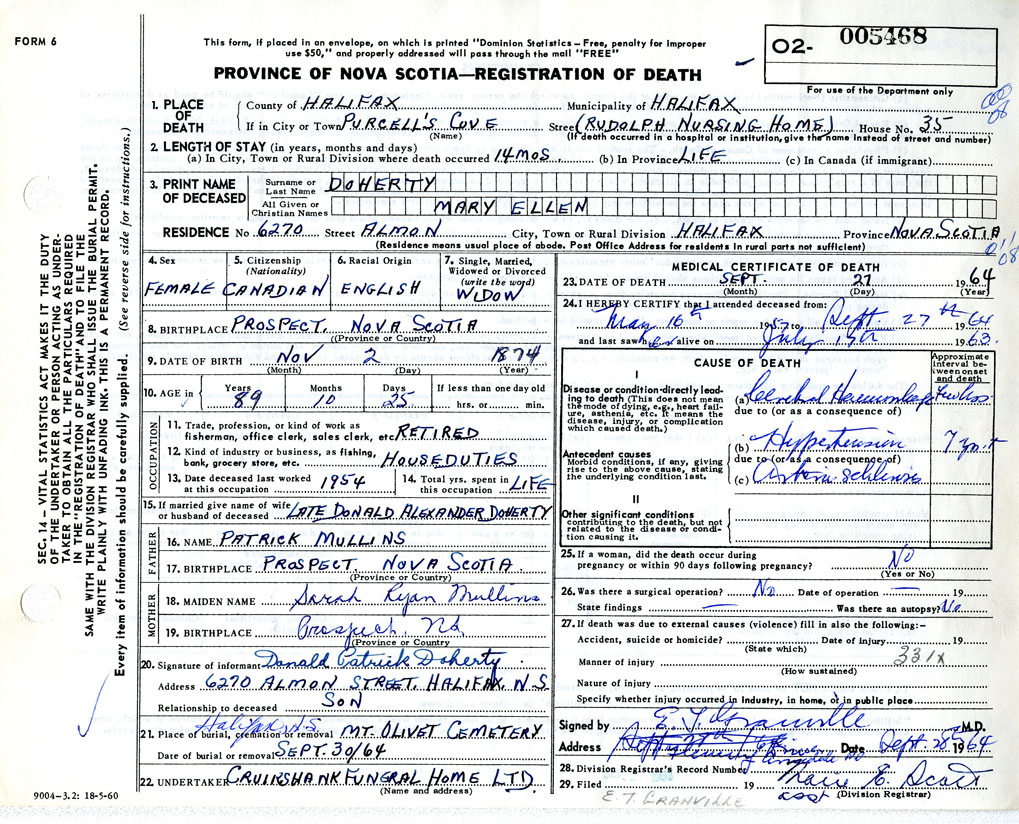 FORM 6
This form, if placed in an envelope, on which is printed "Dominion Statistics – Free, penalty for improper
use $50," and properly addressed will pass through the mail "FREE"
PROVINCE OF NOVA SCOTIA—REGISTRATION OF DEATH
O2- 005468
For use of the Department only
SEC. 14 – VITAL STATISTICS ACT MAKES IT THE DUTY
OF THE UNDERTAKER OR PERSON ACTING AS UNDER-
TAKER TO OBTAIN ALL THE PARTICULARS REQUIRED
IN THE "REGISTRATION OF DEATH" AND TO FILE THE
SAME WITH THE DIVISION REGISTRAR WHO SHALL ISSUE THE BURIAL PERMIT.
WRITE PLAINLY WITH UNFADING INK. THIS IS A PERMANENT RECORD.
Every item of information should be carefully supplied. (See reverse side for instructions.)
1. PLACE OF DEATH
County of HALIFAX Municipality of HALIFAX
If in City or Town PURCELL'S COVE Street (RUDOLPH NURSING HOME) House No. 35
(Name) (If death occurred in a hospital or institution, give the name instead of street and number)
2. LENGTH OF STAY (in years, months and days)
(a) In City, Town or Rural Division where death occurred 14 MOS. (b) In Province LIFE (c) In Canada (if immigrant)
3. PRINT NAME OF DECEASED
Surname or Last Name DOHERTY
All Given or Christian Names MARY ELLEN
RESIDENCE No. 6270 Street ALMON City, Town or Rural Division HALIFAX Province NOVA SCOTIA
(Residence means usual place of abode. Post Office Address for residents in rural parts not sufficient)
4. Sex FEMALE
5. Citizenship (Nationality) CANADIAN
6. Racial Origin ENGLISH
7. Single, Married, Widowed or Divorced (write the word) WIDOW
8. BIRTHPLACE PROSPECT. NOVA SCOTIA
(Province or Country)
9. DATE OF BIRTH NOV 2 1874
(Month) (Day) (Year)
10. AGE in Years 89 Months 10 Days 25 If less than one day old hrs. or min.
OCCUPATION
11. Trade, profession, or kind of work as
fisherman, office clerk, sales clerk, etc. RETIRED
12. Kind of industry or business, as fishing,
bank, grocery store, etc. HOUSEDUTIES
13. Date deceased last worked at this occupation 1954
14. Total yrs. spent in this occupation LIFE
15. If married give name of wife
or husband of deceased LATE DONALD ALEXANDER DOHERTY
FATHER
16. NAME PATRICK MULLINS
17. BIRTHPLACE PROSPECT. NOVA SCOTIA
(Province or Country)
MOTHER
18. MAIDEN NAME Sarah Ryan Mullins
19. BIRTHPLACE Prospect, NS
(Province or Country)
20. Signature of informant Donald Patrick Doherty
Address 6270 ALMON STREET. HALIFAX, N.S
Relationship to deceased SON
Halifax N.S.
21. Place of burial, cremation or removal MT. OLIVET CEMETERY
Date of burial or removal SEPT. 30/64
22. UNDERTAKER CRUIKSHANK FUNERAL HOME LTD.
(Name and address)
9004–3.2: 18-5-60
MEDICAL CERTIFICATE OF DEATH
23. DATE OF DEATH SEPT. 27 1964
(Month) (Day) (Year)
24. I HEREBY CERTIFY that I attended deceased from:
May 16th 1957 to Sept. 27th 1964
and last saw her alive on July 1963.
CAUSE OF DEATH
Approximate interval between onset and death
I
Disease or condition directly lead-
ing to death (This does not mean
the mode of dying, e.g., heart fail-
ure, asthenia, etc. It means the
disease, injury, or complication
which caused death.)
(a) Cerebral Haemorrhage few hrs
due to (or as a consequence of)
Antecedent causes
Morbid conditions, if any, giving
rise to the above cause, stating
the underlying condition last.
(b) Hypertension 7 yrs +
due to (or as a consequence of)
(c)
II
Other significant conditions
contributing to the death, but not
related to the disease or condi-
tion causing it.
25. If a woman, did the death occur during
pregnancy or within 90 days following pregnancy? No
(Yes or No)
26. Was there a surgical operation? No Date of operation — 19
State findings — Was there an autopsy? No
27. If death was due to external causes (violence) fill in also the following:–
Accident, suicide or homicide? Date of injury 19
(State which)
331x
Manner of injury
(How sustained)
Nature of injury
Specify whether injury occurred in industry, in home, or in public place
Signed by E. T. Granville M.D.
Address Date Sept. 28th 1964
28. Division Registrar's Record Number
29. Filed 19 Marie E. Scott
asst (Division Registrar)
E. T. GRANVILLE